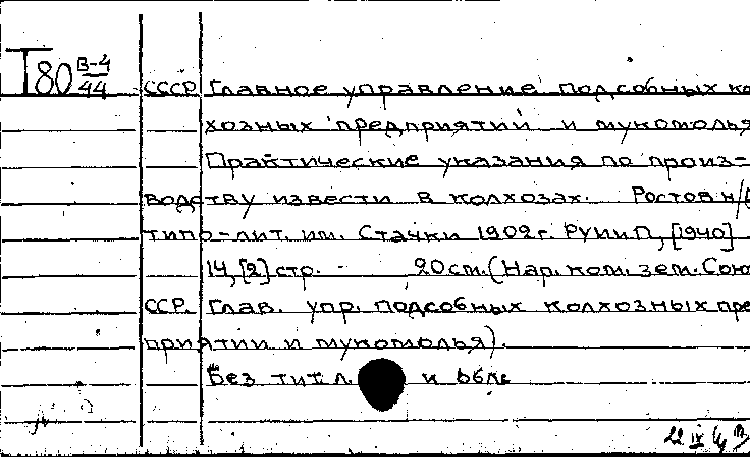 Т80 В-4/44
СССР Главное управление подсобных ко
хозных предприятий и мукомолья
Практические указания по произ-
водству извести в колхозах. Ростов н/Д
типо-лит. им. Стачки 1902 г. РУИиП, [1940]
14, [2] стр. - 20 см. (Нар. ком. зем. Сою
ССР. Глав. упр. подсобных колхозных пре
приятий и мукомолья).
Без тит. л. и обл.
22 IX